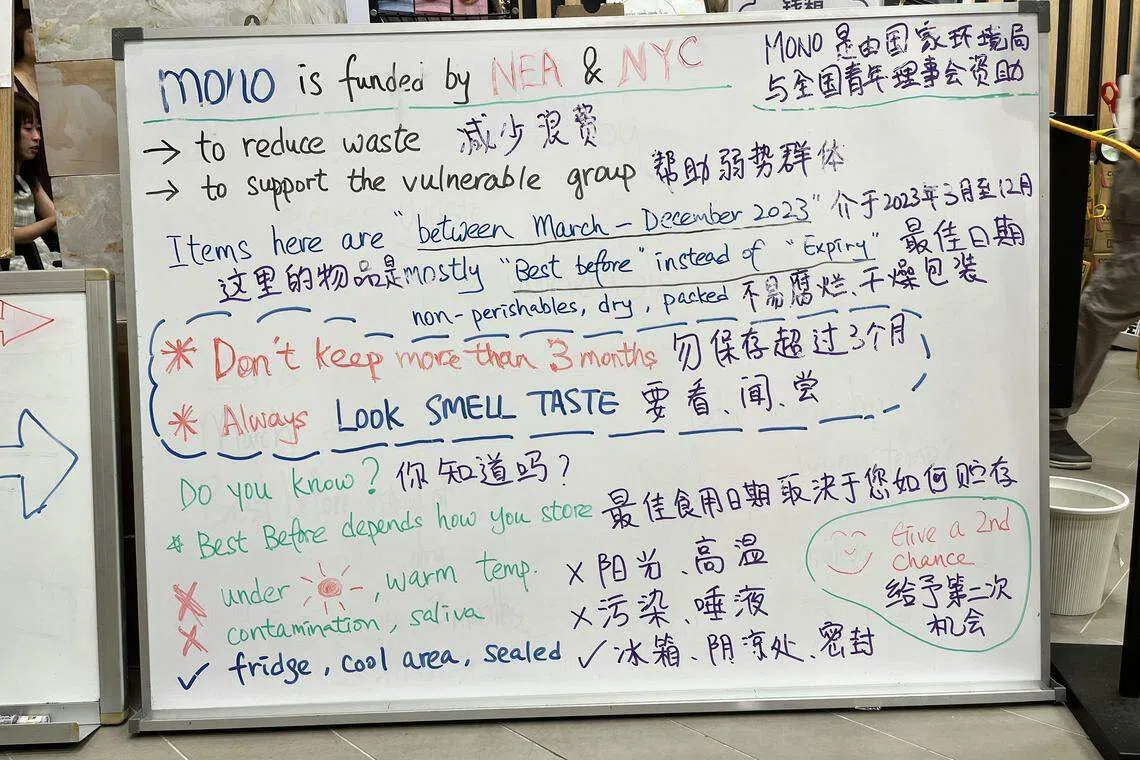 MONO is funded by NEA & NYC
MONO 是由国家环境局
与全国青年理事会资助
→ to reduce waste 减少浪费
→ to support the vulnerable group 帮助弱势群体
Items here are "between March - December 2023" 介于2023年3月至12月
这里的物品是mostly "Best before" instead of "Expiry" 最佳日期
non-perishables, dry, packed 不易腐烂、干燥包装
* Don't keep more than 3 months 勿保存超过3个月
* Always LOOK SMELL TASTE 要看、闻、尝
Do you know? 你知道吗?
* Best Before depends how you store 最佳食用日期取决于您如何贮存
x under , warm temp. x 阳光、高温
x contamination, saliva x 污染、唾液
✓ fridge, cool area, sealed ✓ 冰箱、阴凉处、密封
Give a 2nd
chance
给予第二次
机会